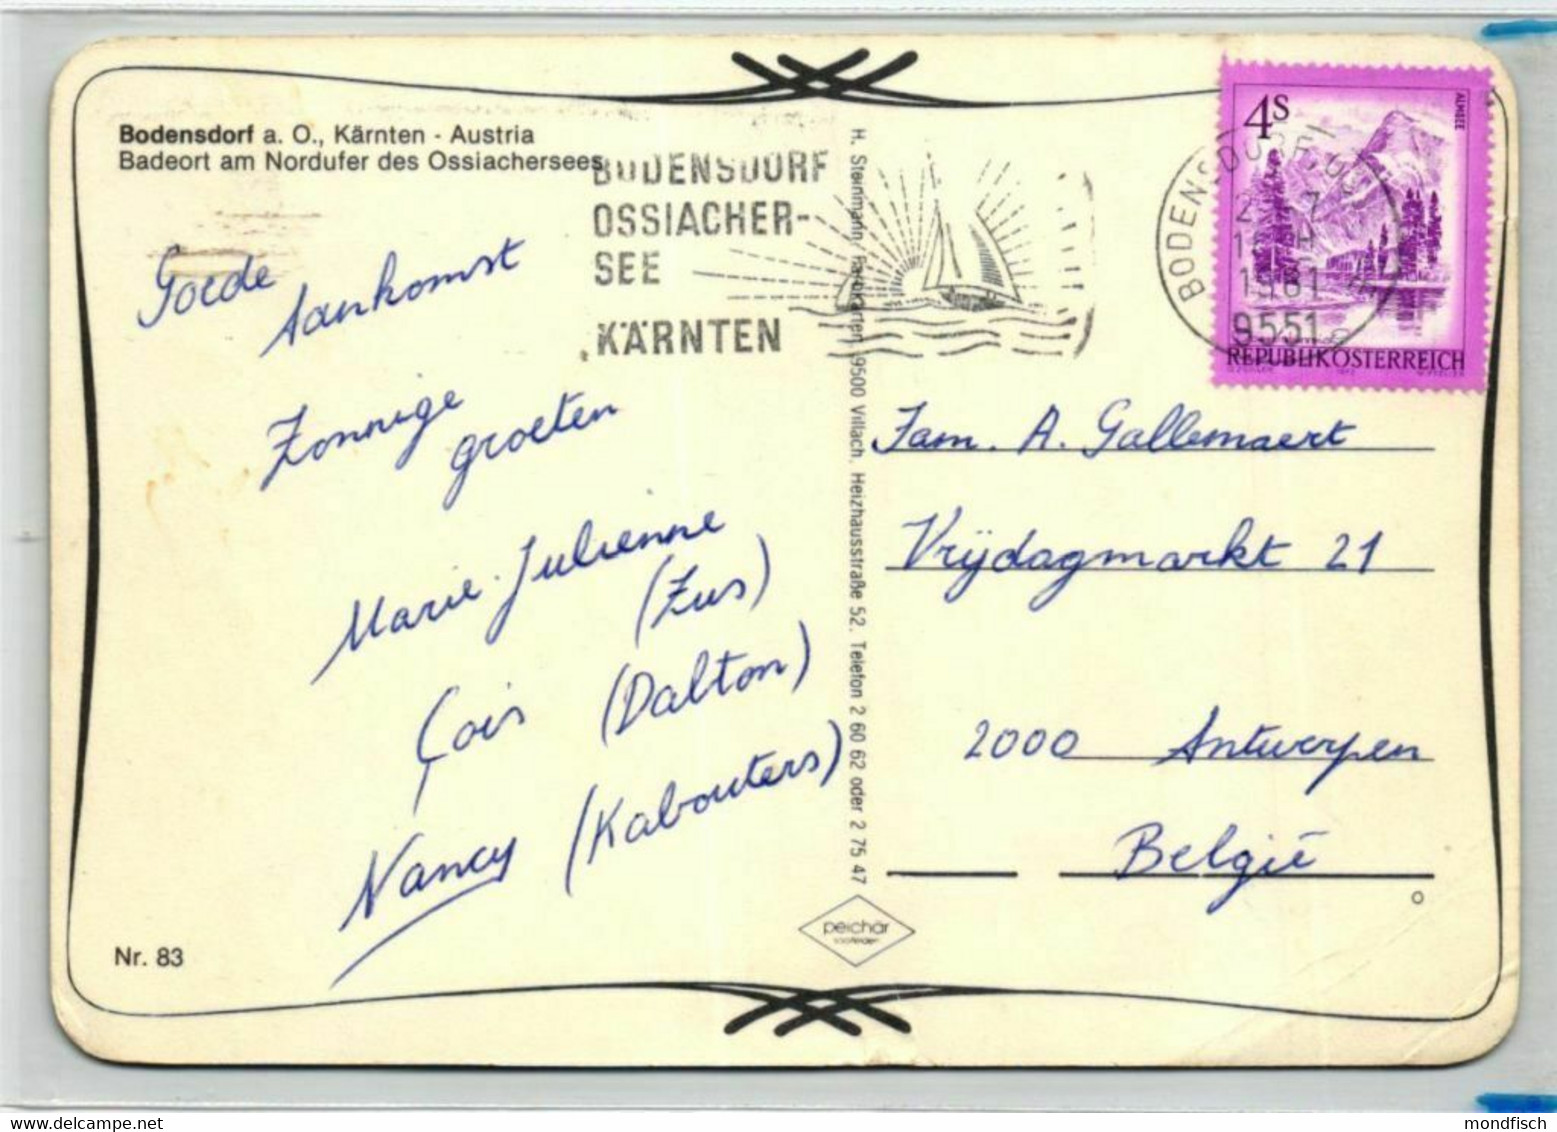 Bodensdorf a. O., Kärnten - Austria
Badeort am Nordufer des Ossiachersees
BODENSDORF
OSSIACHER-
SEE
KÄRNTEN
4S
ALMSEE
BODENSDORF
1981
9551
REPUBLIK ÖSTERREICH
Goede
Aankomst
Zonnige
groeten
Marie-Julienne
(Zus)
Çois (Dalton)
Nancy (Kabouters)
Nr. 83
H. Steinmann, Farbkarten, 9500 Villach, Heizhausstraße 52, Telefon 2 60 62 oder 2 75 47
peichär
Fam. A. Gallemaert
Vrijdagmarkt 21
2000 Antwerpen
België
mondfisch